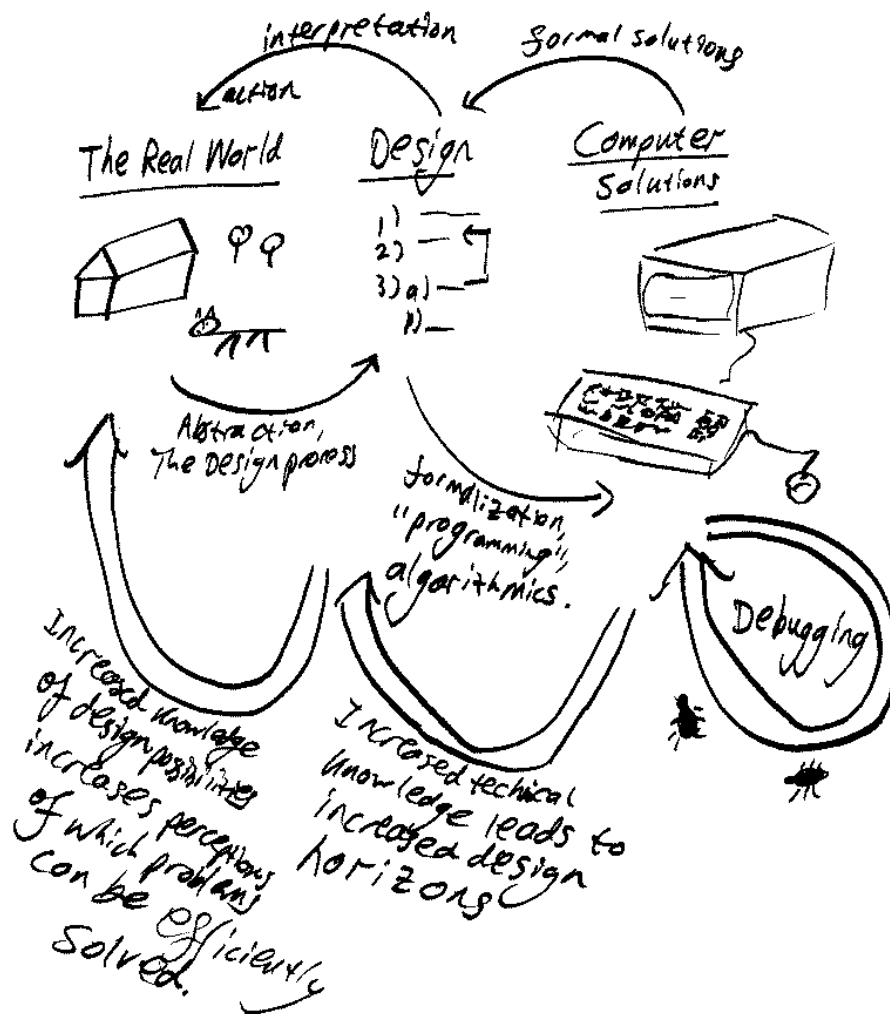 interpretation
formal solutions
action
The Real World
Design
Computer
Solutions
1)
2)
3) a)
b)
Abstraction,
The Design process
formalization,
"programming",
algorithmics.
Debugging
Increased knowledge
of design possibilities
increases perceptions
of which problems
can be efficiently
solved.
Increased techical
knowledge leads to
increased design
horizons